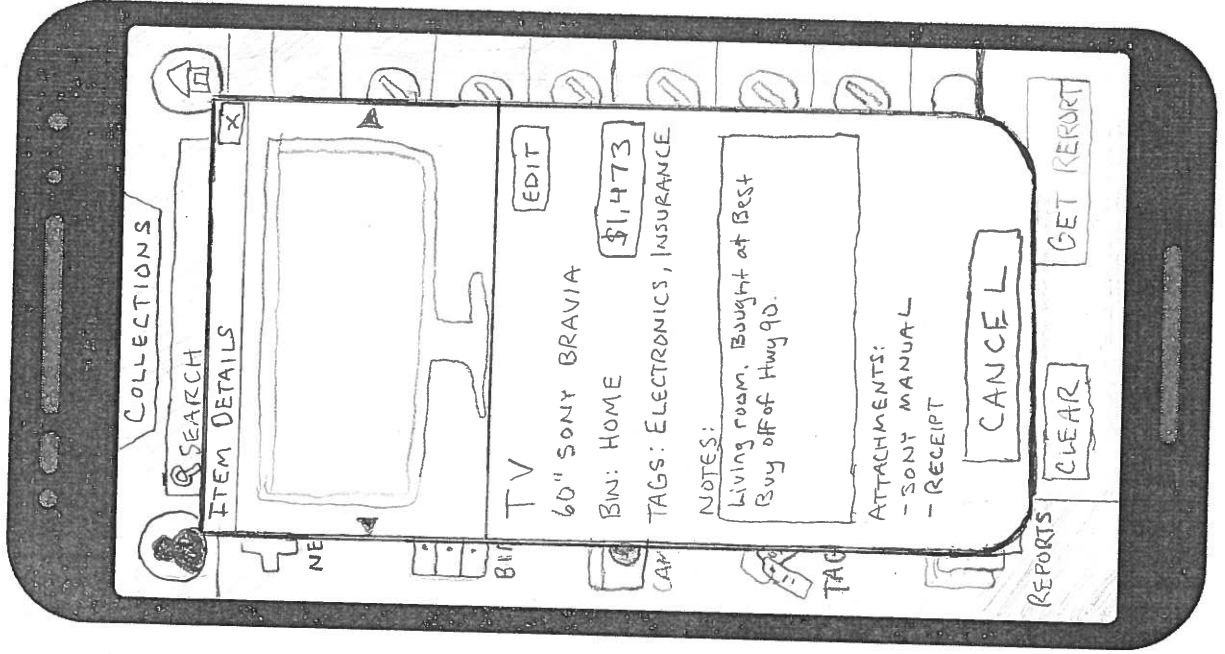 COLLECTIONS
SEARCH
ITEM DETAILS
X
TV
EDIT
60" SONY BRAVIA
BIN: HOME
$1,473
TAGS: ELECTRONICS, INSURANCE
NOTES:
Living room. Bought at Best
Buy off of Hwy 90.
ATTACHMENTS:
- SONY MANUAL
- RECEIPT
CANCEL
NE
BI
CAM
TAG
REPORTS
CLEAR
GET REPORT